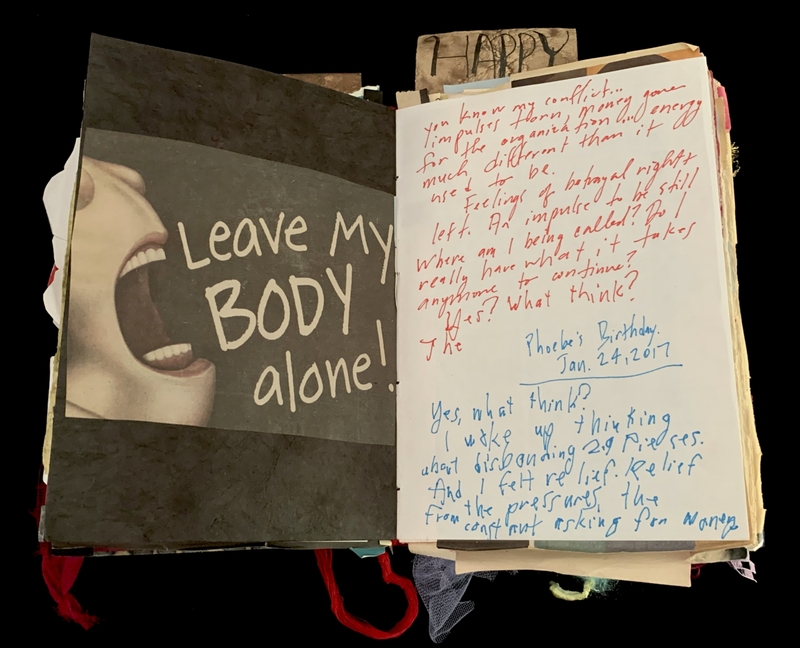 HAPPY
Leave My
BODY
alone!
you know my conflict...
impulses torn, money gone
for the organization... energy
much different than it
used to be.
Feelings of betrayal right &
left. An impulse to be still
Where am I being called? Do I
really have what it takes
anymore to continue?
Yes? What think?
The
Phoebe's Birthday.
Jan. 24, 2017
Yes, what think?
I wake up thinking
about disbanding 29 Pieces.
And I felt relief. Relief
from the pressures, the
constant asking for money